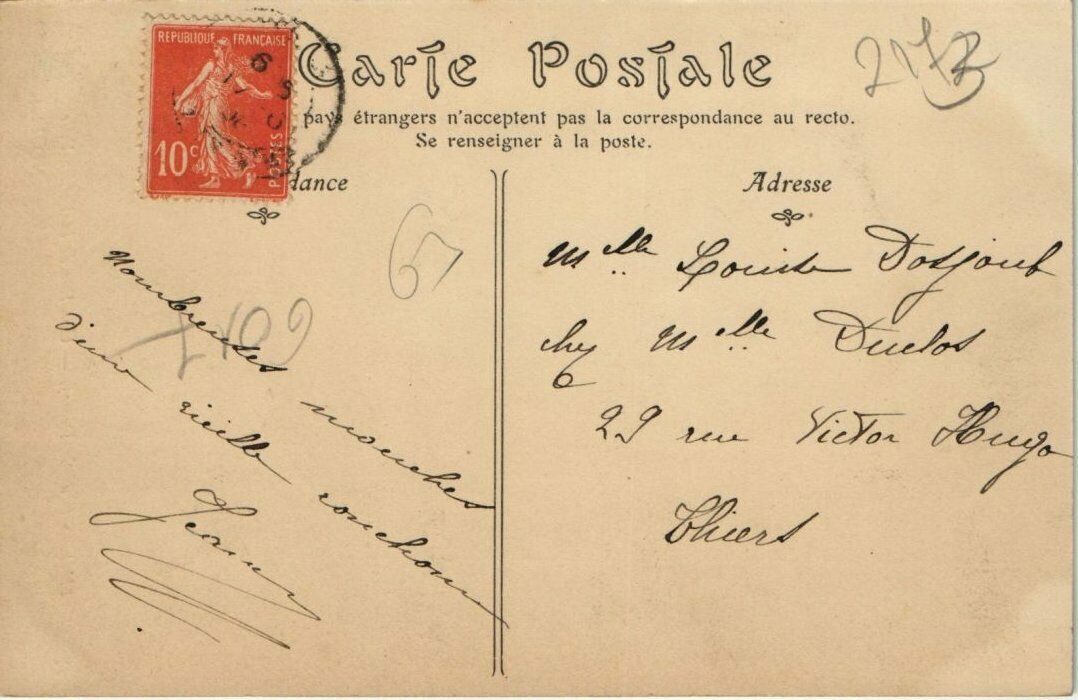 REPUBLIQUE FRANÇAISE
10c
POSTES
Carte Postale
pays étrangers n'acceptent pas la correspondance au recto.
Se renseigner à la poste.
dance
Adresse
67
Nombreuses mouches
d'une vieille
Jeanne
Mlle Louise
chez Mlle Duclos
29 rue Victor Hugo
Thiers